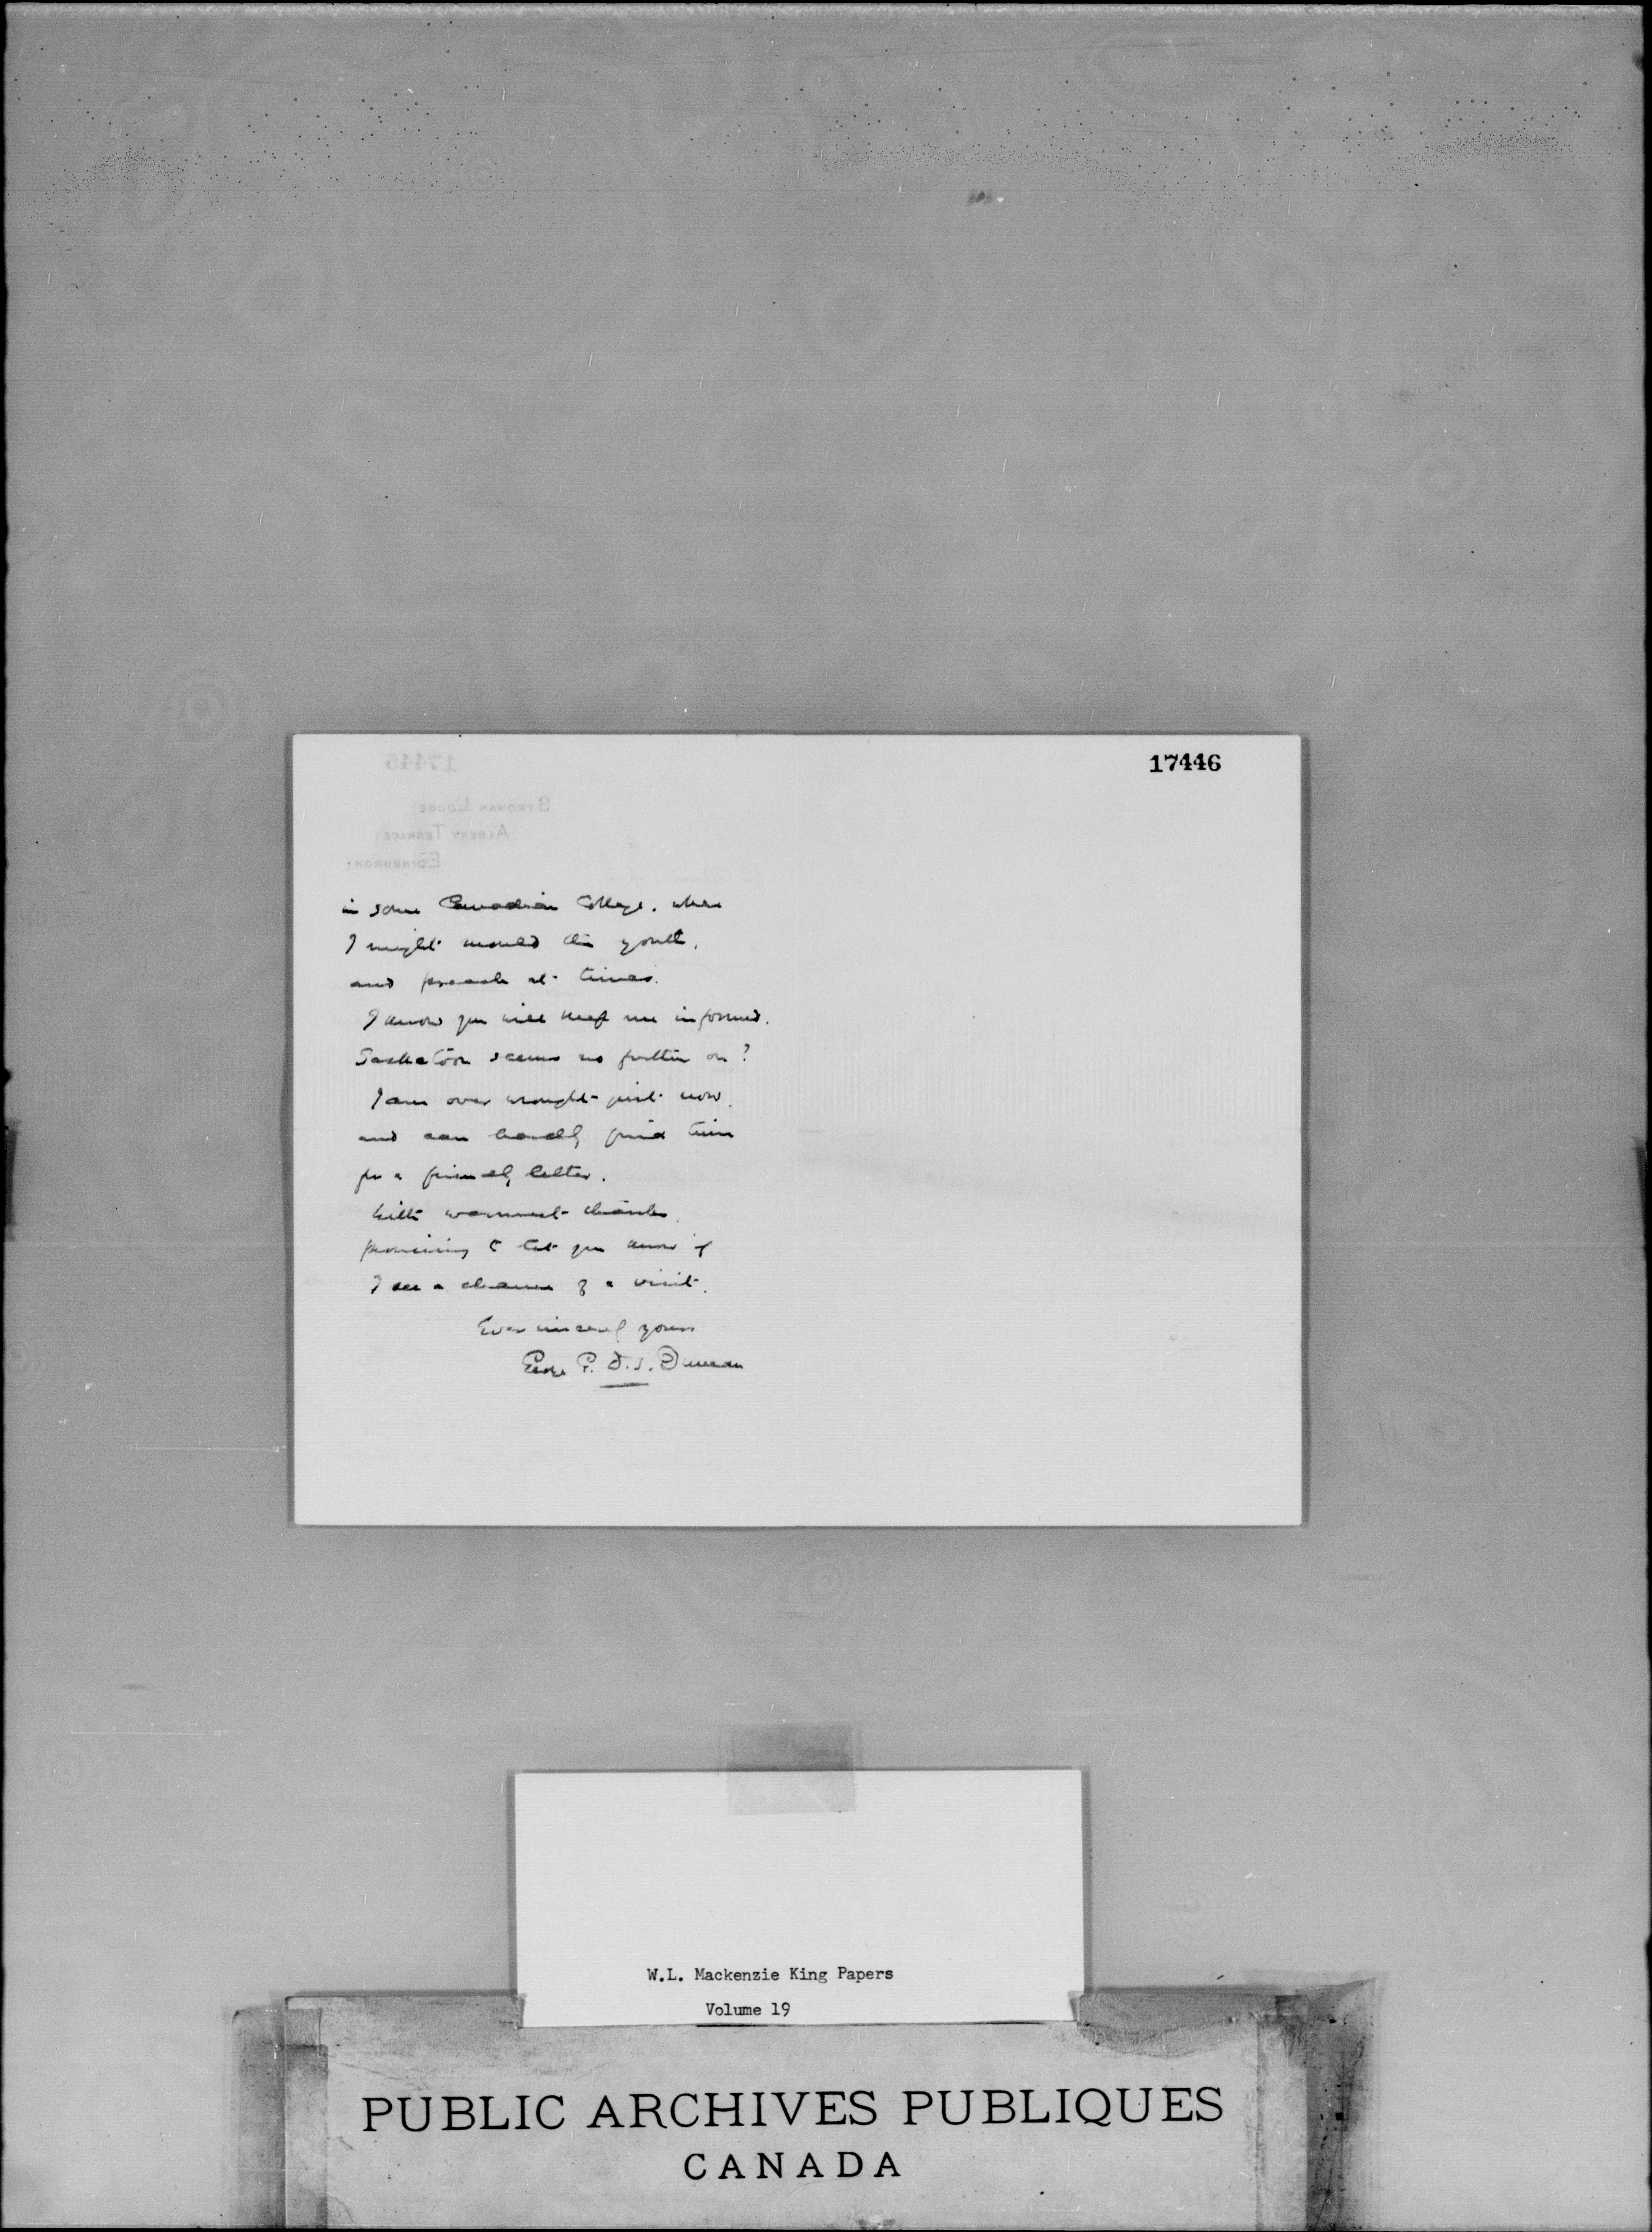 17446
in some Canadian College, where
I might mould the youth,
and preach at times.
I know you will keep me informed.
Saskatoon seems no further on?
I am over wrought just now
and can hardly find time
for a friendly letter.
With warmest thanks,
promising to let you know if
I see a chance of a visit.
Ever sincerely yours
George P. D. S. Duncan
W.L. Mackenzie King Papers
Volume 19
PUBLIC ARCHIVES PUBLIQUES
CANADA